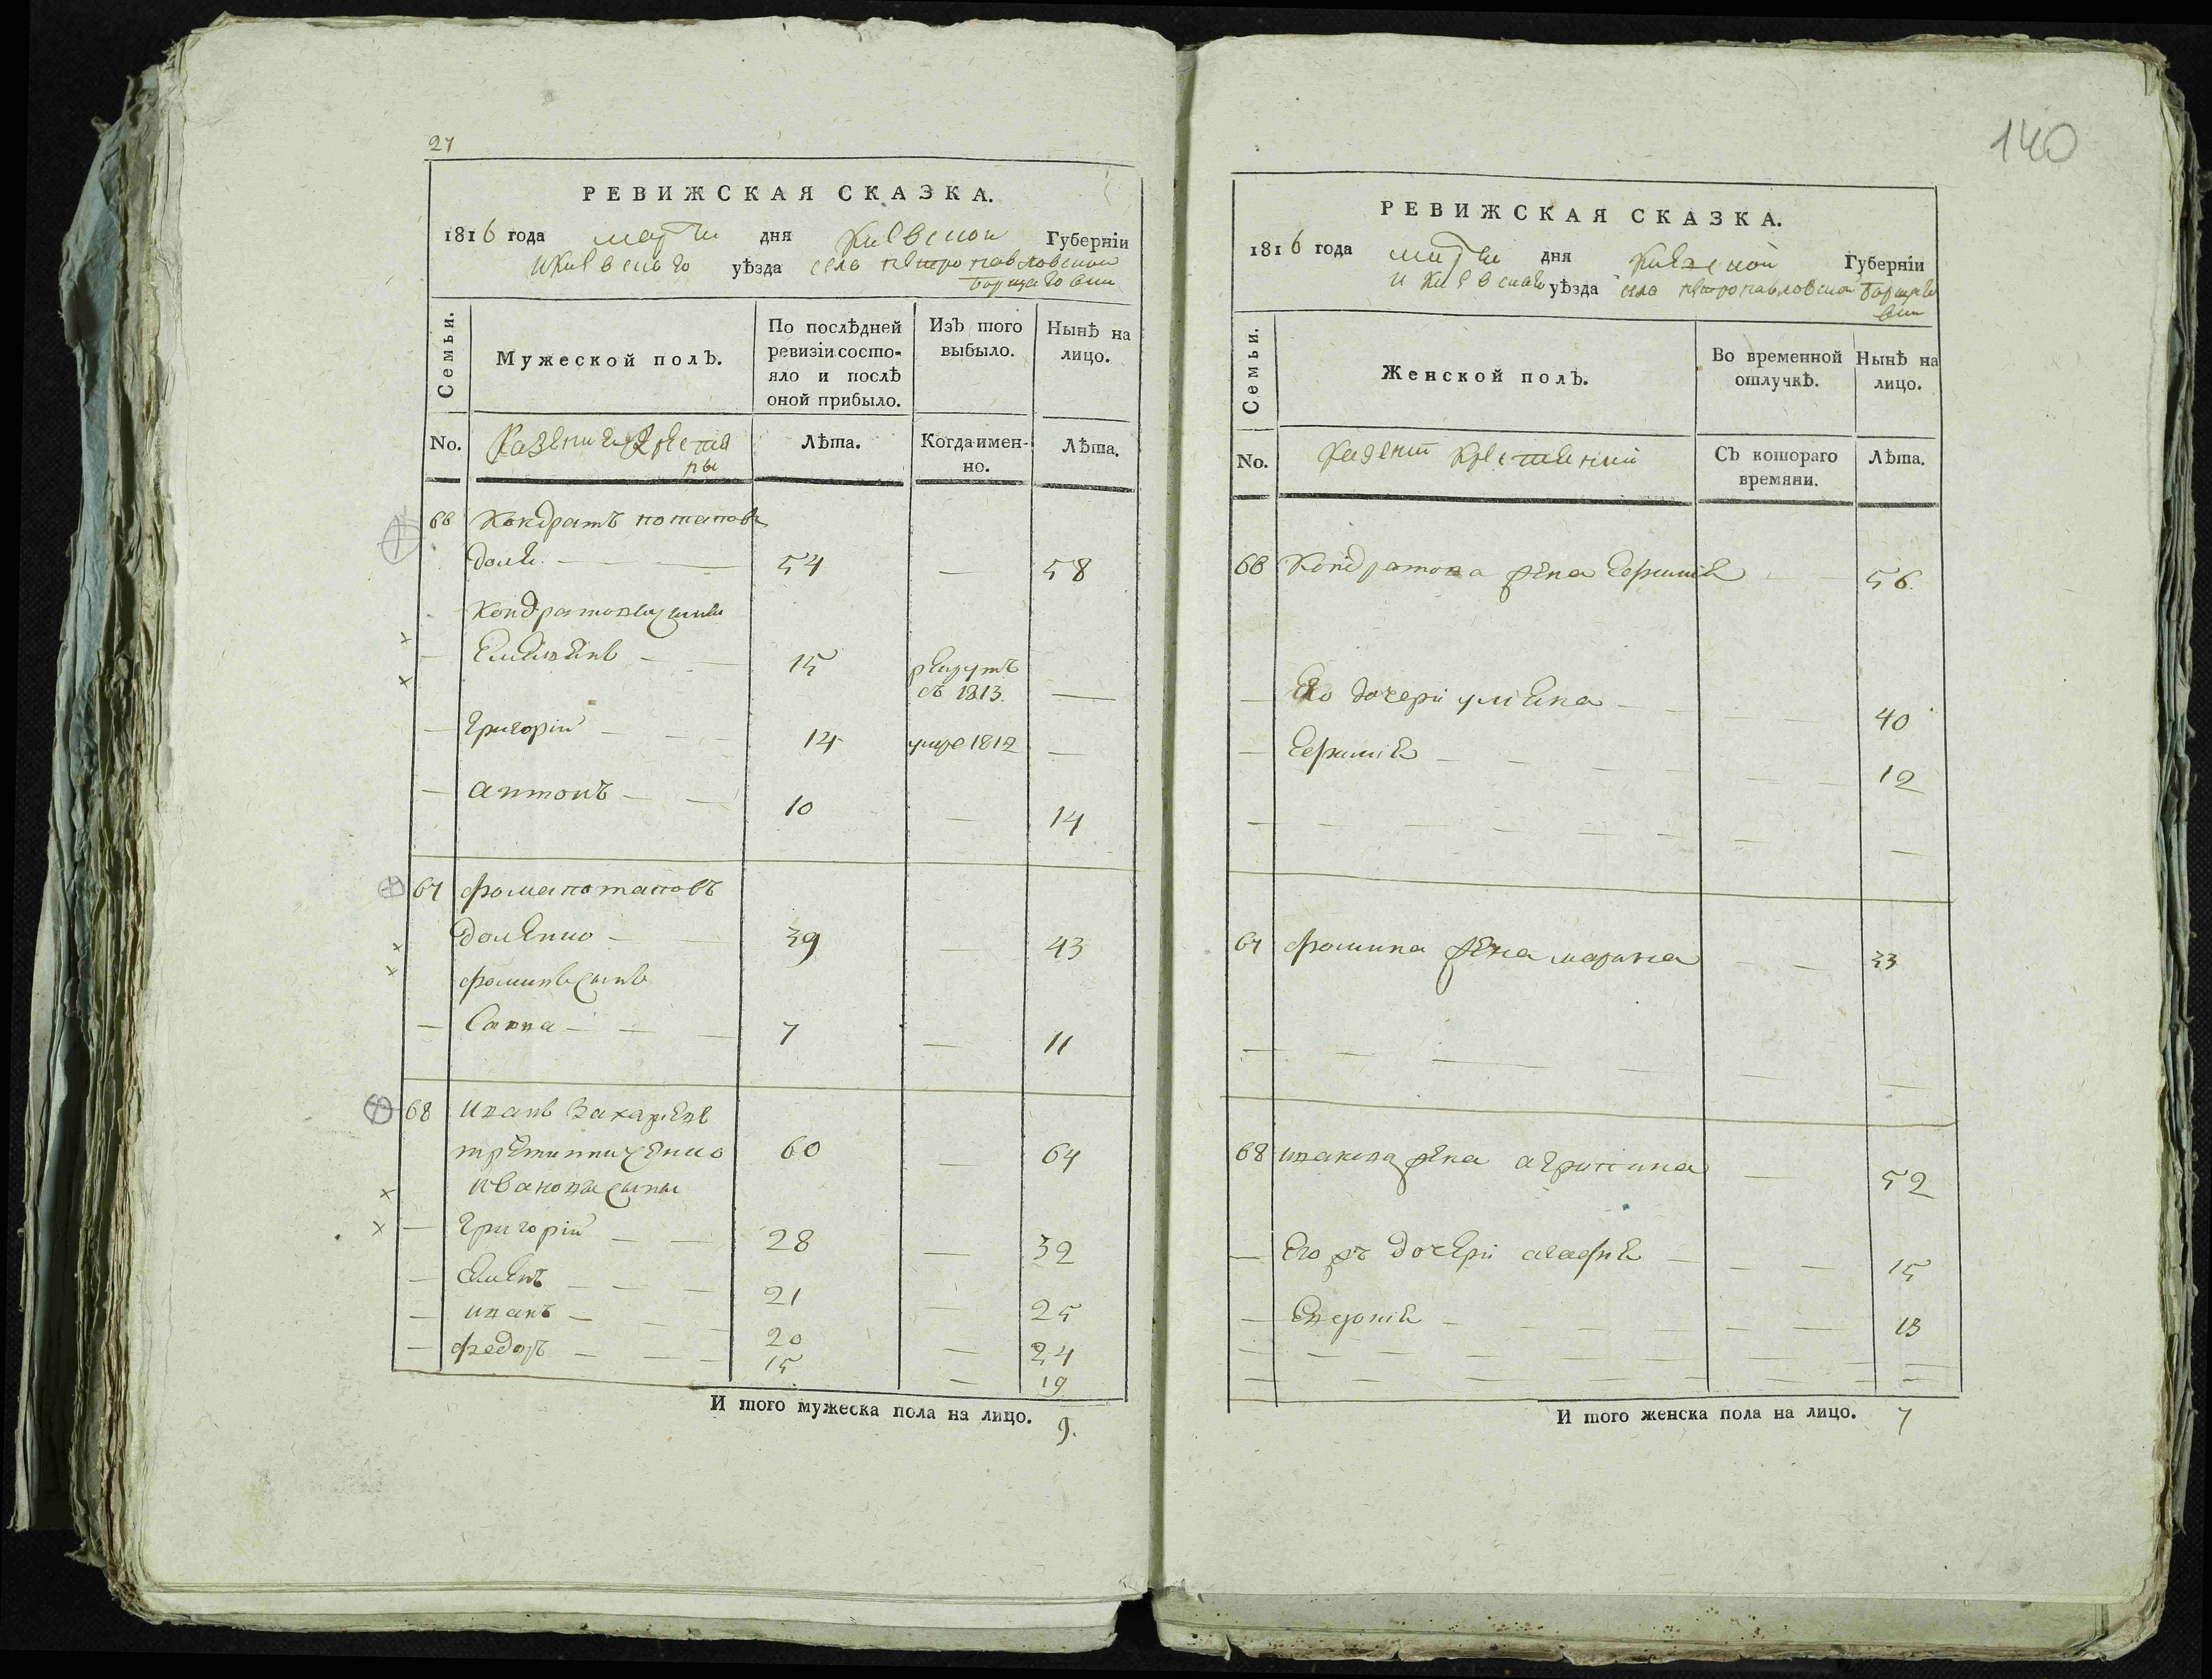 27
РЕВИЖСКАЯ СКАЗКА.
1816 года марта дня Киевской Губерніи
и Киевскаго уѣзда села петропавловской
борщаговки
Семьи.
Мужеской полЪ.
По послѣдней ревизіи состо-
яло и послѣ
оной прибыло.
ИзЪ того
выбыло.
НынѢ на
лицо.
No.
Казенние Крестя
ны
Лѣта.
Когда имен-
но.
Лѣта.
66 Кондратъ потаповъ
54 — 58
Кондратовы сини
— 15 рекрутъ
съ 1813. —
— Григорій 14 умре 1812 —
— антонъ 10 — 14
67 фома потаповъ
доленко 39 — 43
фоминъ синъ
— Савва 7 — 11
68 иванъ Захариевъ
60 — 64
ивановы сыны
— Григорій 28 — 32
— Семенъ 21 — 25
— иванъ 20 — 24
— федоръ 15 — 19
И того мужеска пола на лицо. 9.
140
РЕВИЖСКАЯ СКАЗКА.
1816 года марта дня Киевской Губерніи
и Киевскаго уѣзда села петропавловской борщаго
вки
Семьи.
Женской полЪ.
Во временной
отлучкѢ.
НынѢ на
лицо.
No.
Съ котораго
времяни.
Лѣта.
66 Кондратова жена Ефимія 56.
— Его дочери уліяна 40
— Ефимія 12
67 фомина жена марина 33
68 иванова жена агрипина 52
— Его жъ дочери агафия 15
— Евдокія 13
И того женска пола на лицо. 7